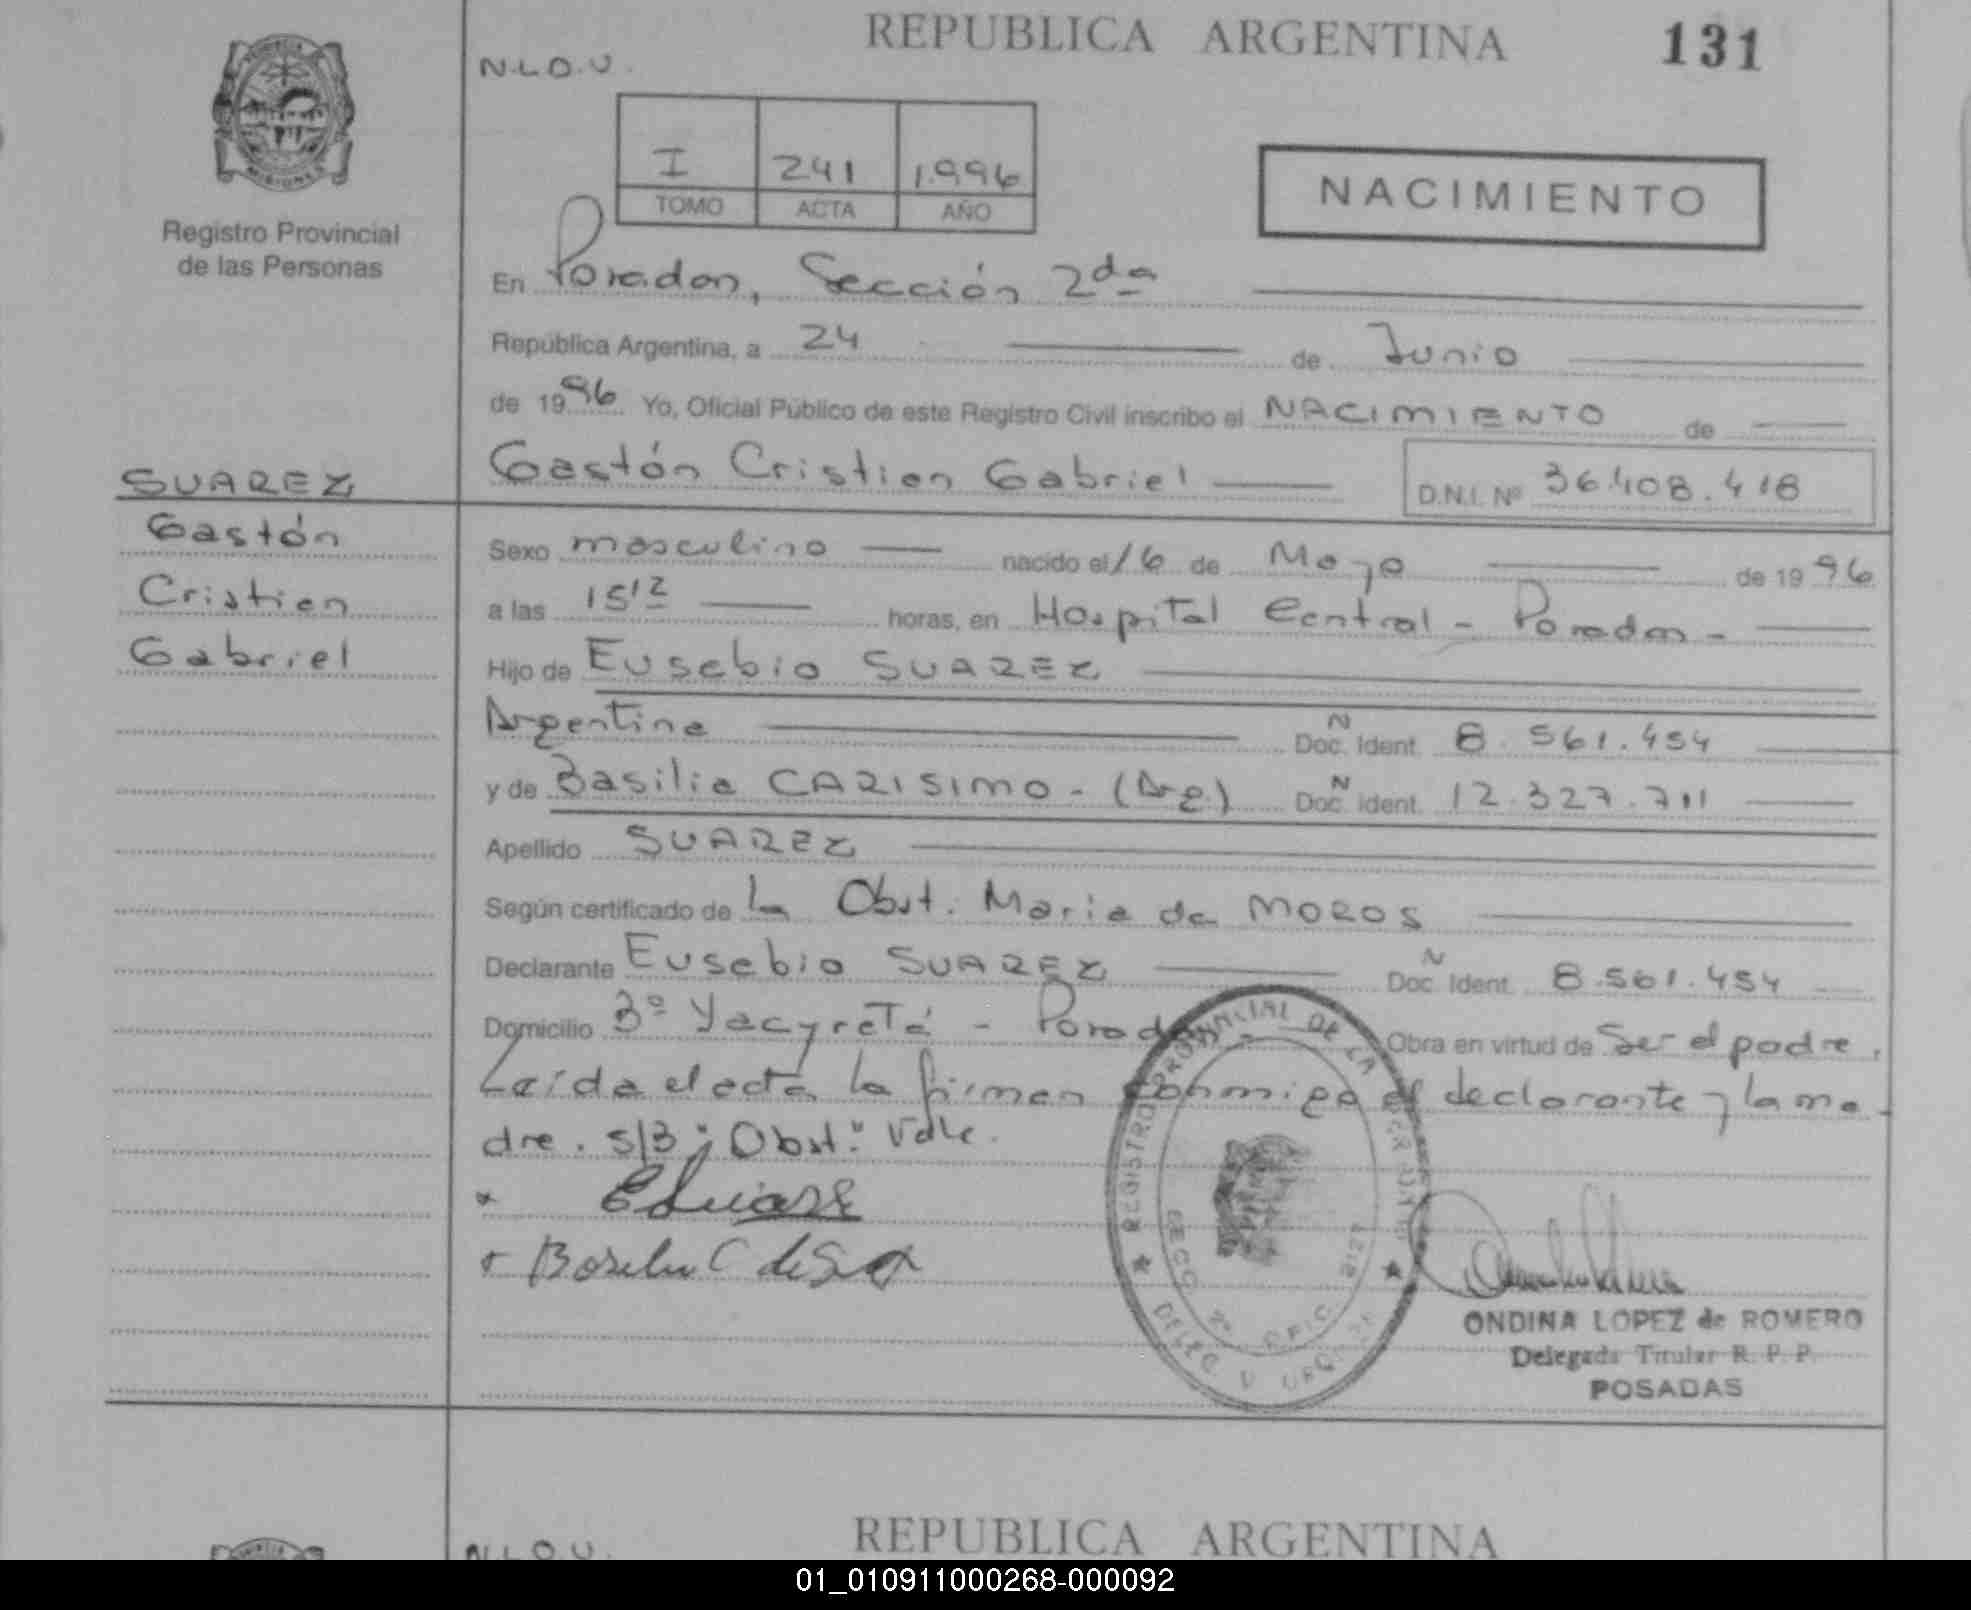 REPUBLICA ARGENTINA 131
N.L.O.U.
I 241 1.996
TOMO ACTA AÑO
NACIMIENTO
MISIONES
Registro Provincial
de las Personas
En Posadas, Sección 2da
República Argentina, a 24 de Junio
de 1996 Yo, Oficial Público de este Registro Civil inscribo el NACIMIENTO de
SUAREZ
Gastón Cristian Gabriel D.N.I. Nº 36.408.418
Gastón
Cristian
Gabriel
Sexo masculino nacido el 16 de Mayo de 1996
a las 15 12 horas, en Hospital Central - Posadas -
Hijo de Eusebio SUAREZ
Argentina N Doc. Ident. 8.561.454
y de Basilia CARISIMO - (Arg.) N Doc. Ident. 12.327.711
Apellido SUAREZ
Según certificado de la Obst. Maria de MOROS
Declarante Eusebio SUAREZ N Doc. Ident. 8.561.454
Domicilio Bº Yacyretá - Posadas Obra en virtud de Ser el padre.
Leída el acta la firman conmigo el declarante y la ma-
dre. S/B: "Obst." Vale.
REGISTRO PROVINCIAL DE LA
SECC 2º OFIC
ONDINA LOPEZ de ROMERO
Delegada Titular R. P. P.
POSADAS
REPUBLICA ARGENTINA
N.L.O.U.
01_010911000268-000092